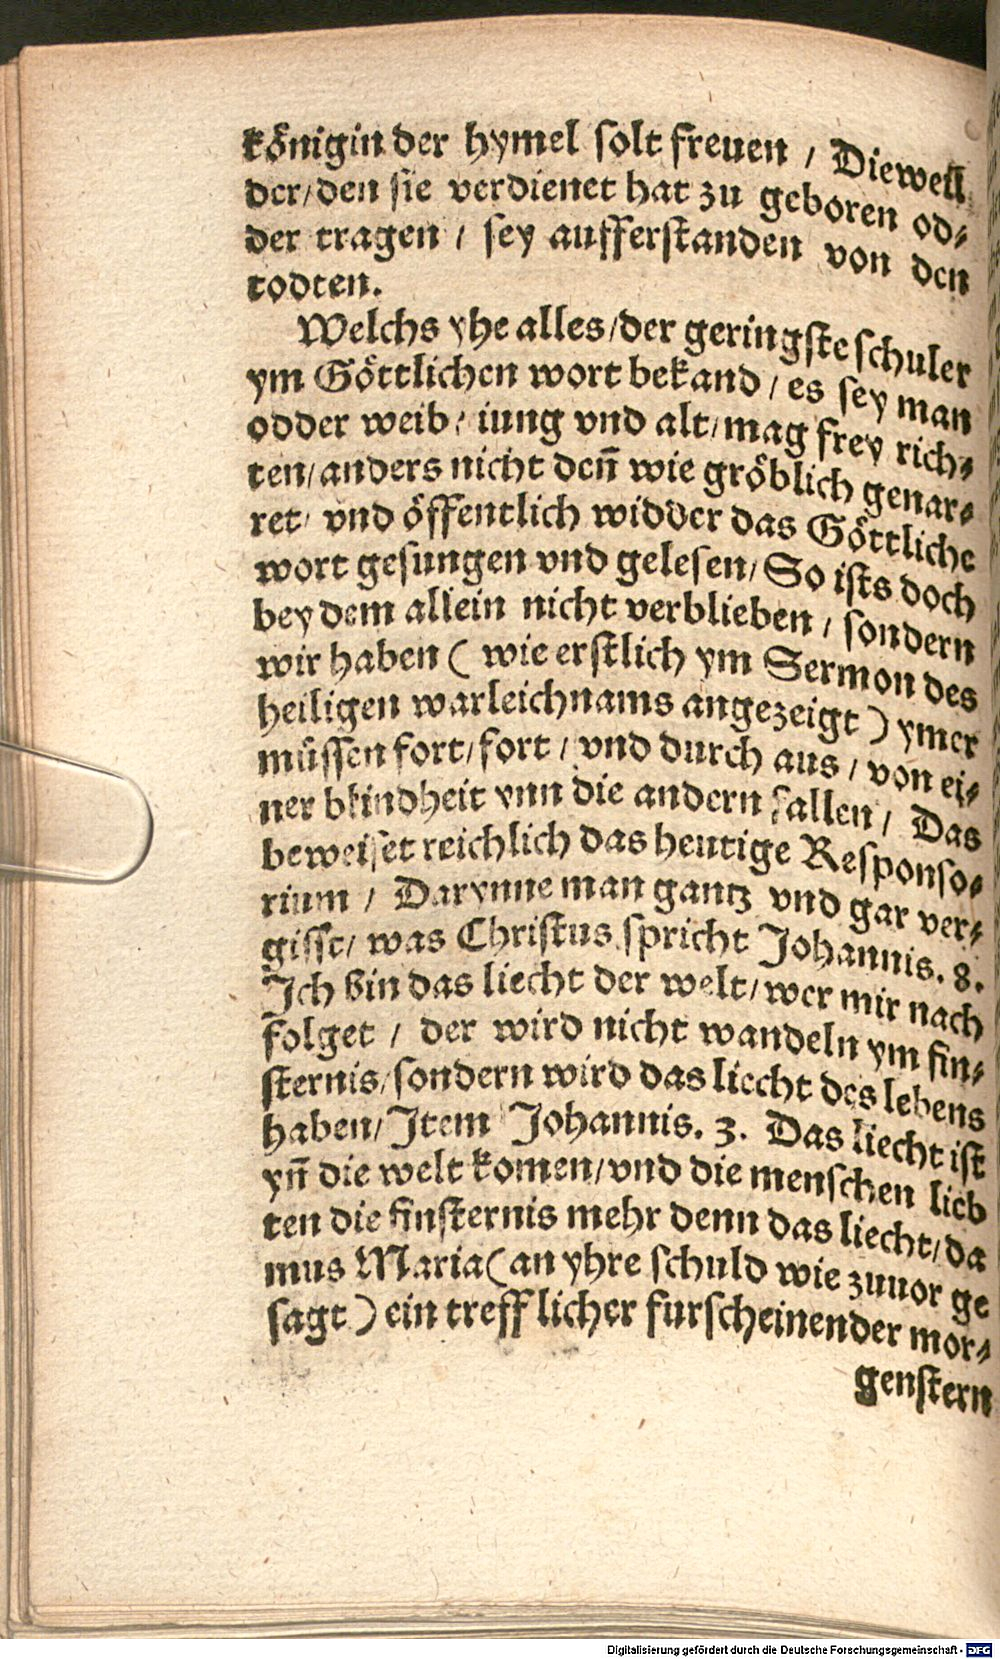 königin der hymel solt freuen / Dieweil
der/den sie verdienet hat zu geboren od⸗
der tragen / sey aufferstanden von den
todten.
Welchs yhe alles/der geringste schuler
ym Göttlichen wort bekand / es sey man
odder weib / iung vnd alt/mag frey rich⸗
ten/anders nicht deñ wie gröblich genar⸗
ret/ vnd öffentlich widder das Göttliche
wort gesungen vnd gelesen/ So ists doch
bey dem allein nicht verblieben / sondern
wir haben ( wie erstlich ym Sermon des
heiligen warleichnams angezeigt ) ymer
müssen fort/fort / vnd durch aus / von ei⸗
ner blindheit ynn die andern fallen / Das
beweiset reichlich das heutige Responso⸗
rium / Darynne man gantz vnd gar ver⸗
gisst/ was Christus spricht Johannis. 8.
Ich bin das liecht der welt/wer mir nach
folget / der wird nicht wandeln ym fin⸗
sternis/sondern wird das liecht des lebens
haben/ Item Johannis. 3. Das liecht ist
yñ die welt komen/vnd die menschen lieb
ten die finsternis mehr denn das liecht/da
mus Maria(an yhre schuld wie zuuor ge
sagt ) ein trefflicher furscheinender mor⸗
genstern
Digitalisierung gefördert durch die Deutsche Forschungsgemeinschaft - DFG